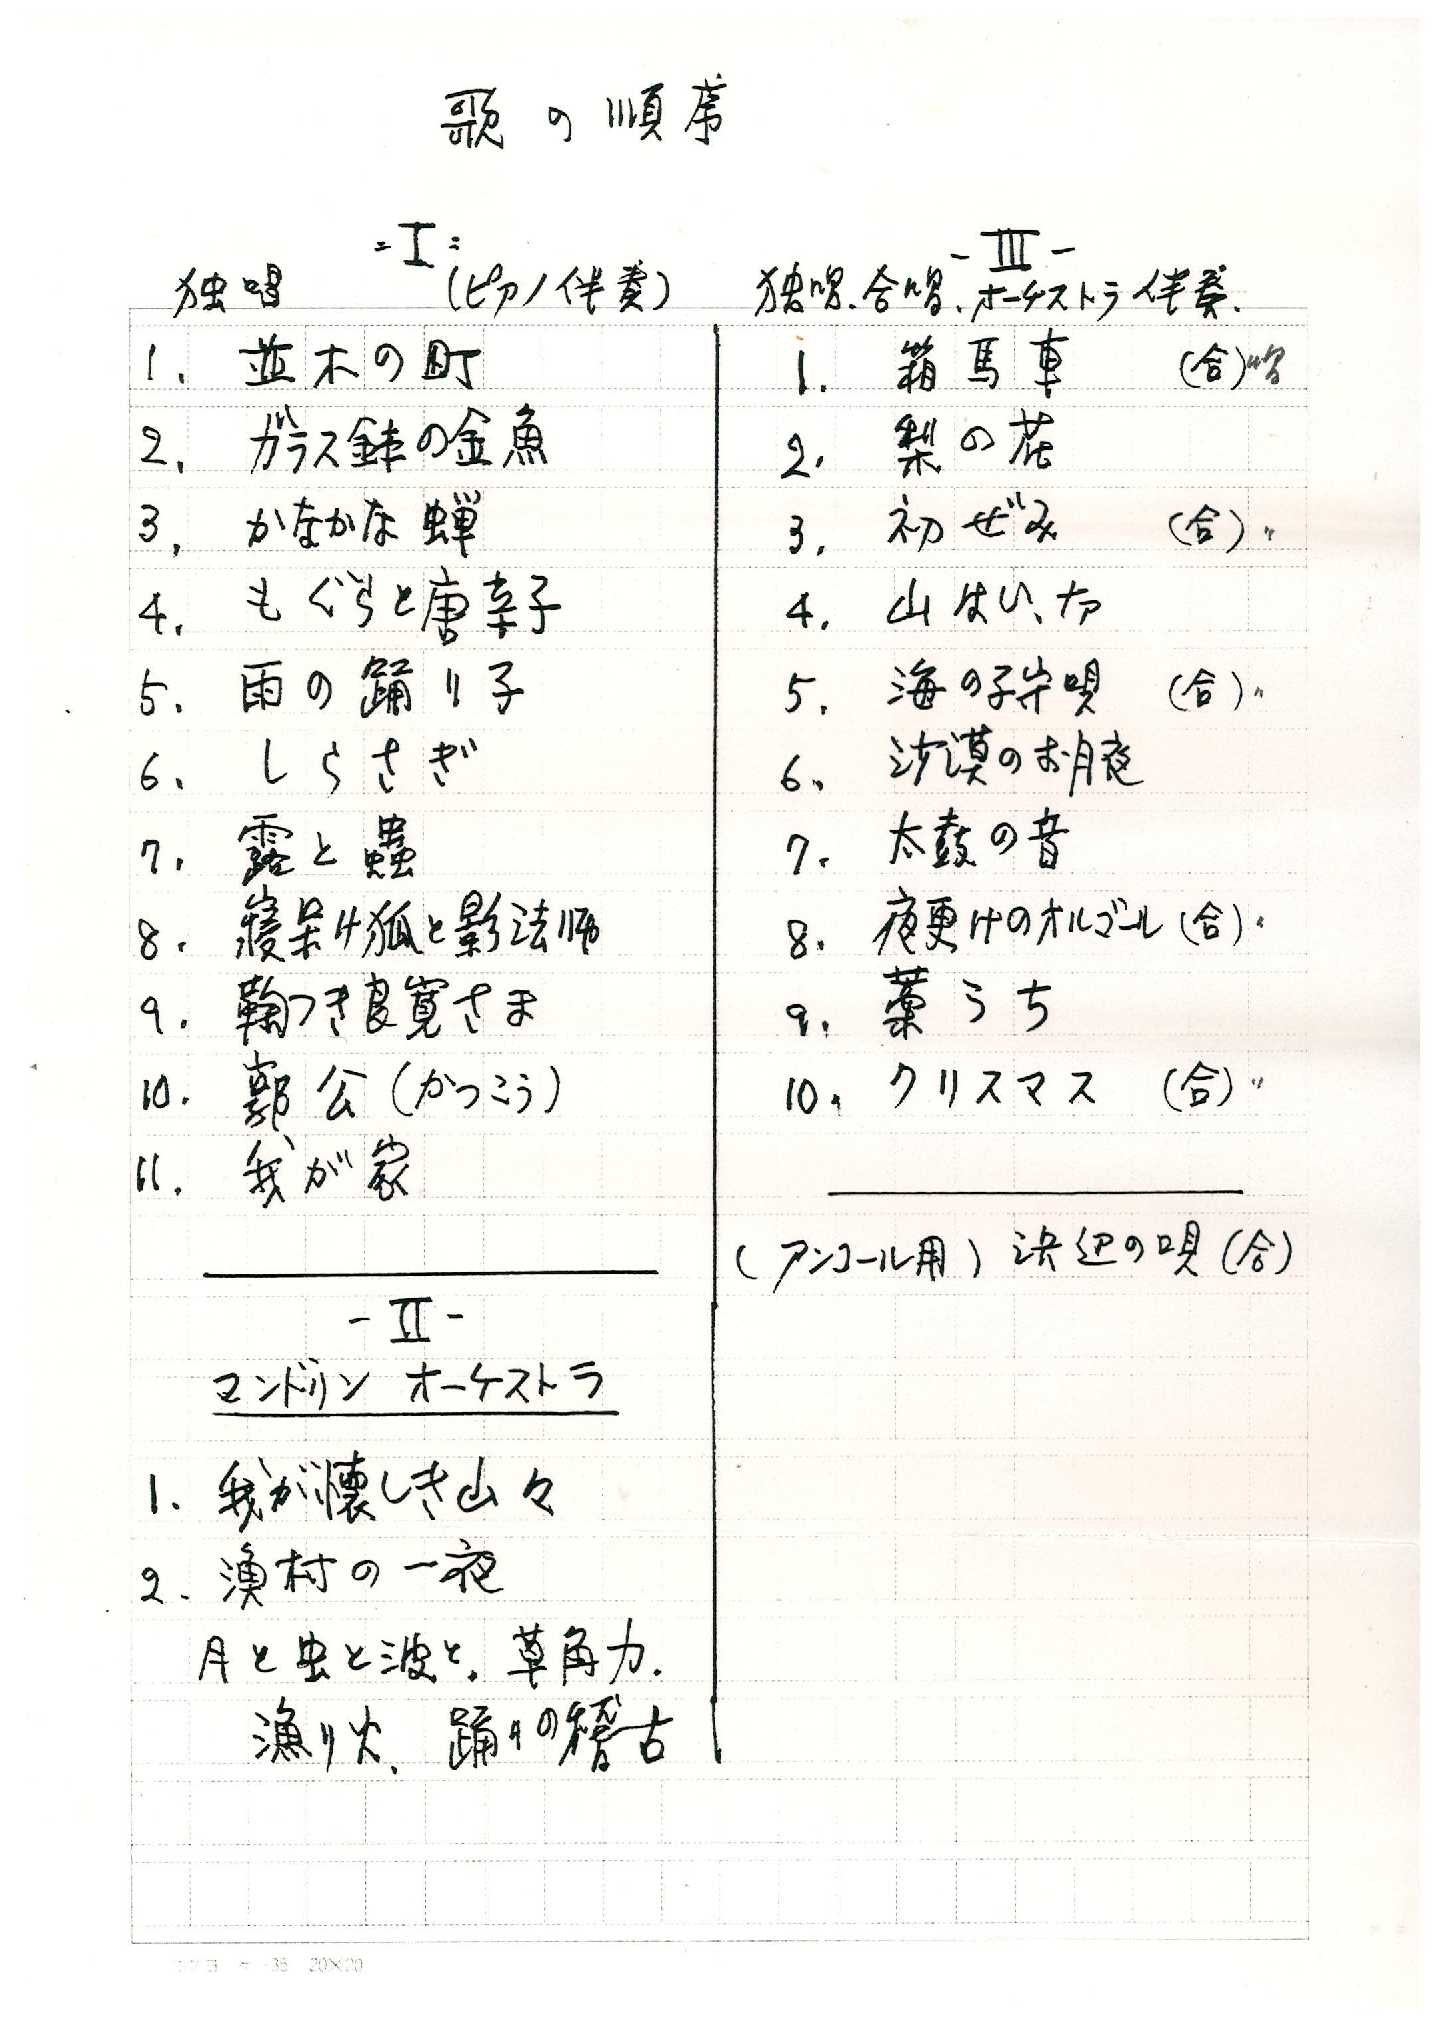 歌の順序
-I-
独唱 (ピアノ伴奏)
1. 並木の町
2. ガラス鉢の金魚
3. かなかな蝉
4. もぐらと唐辛子
5. 雨の踊り子
6. しらさぎ
7. 露と蟲
8. 寝呆け狐と影法師
9. 鞠つき良寛さま
10. 郭公(かつこう)
11. 我が家
-II-
マンドリン オーケストラ
1. 我が懐しき山々
2. 漁村の一夜
月と虫と波と、草角力、
漁り火、踊りの稽古
-III-
独唱、合唱、オーケストラ伴奏、
1. 箱馬車 (合)唱
2. 梨の花
3. 初ぜみ (合)〃
4. 山はいゝナア
5. 海の子守唄 (合)〃
6. 沙漠のお月夜
7. 太鼓の音
8. 夜更けのオルゴール (合)〃
9. 藁うち
10. クリスマス (合)〃
(アンコール用) 浜辺の唄(合)
20×20